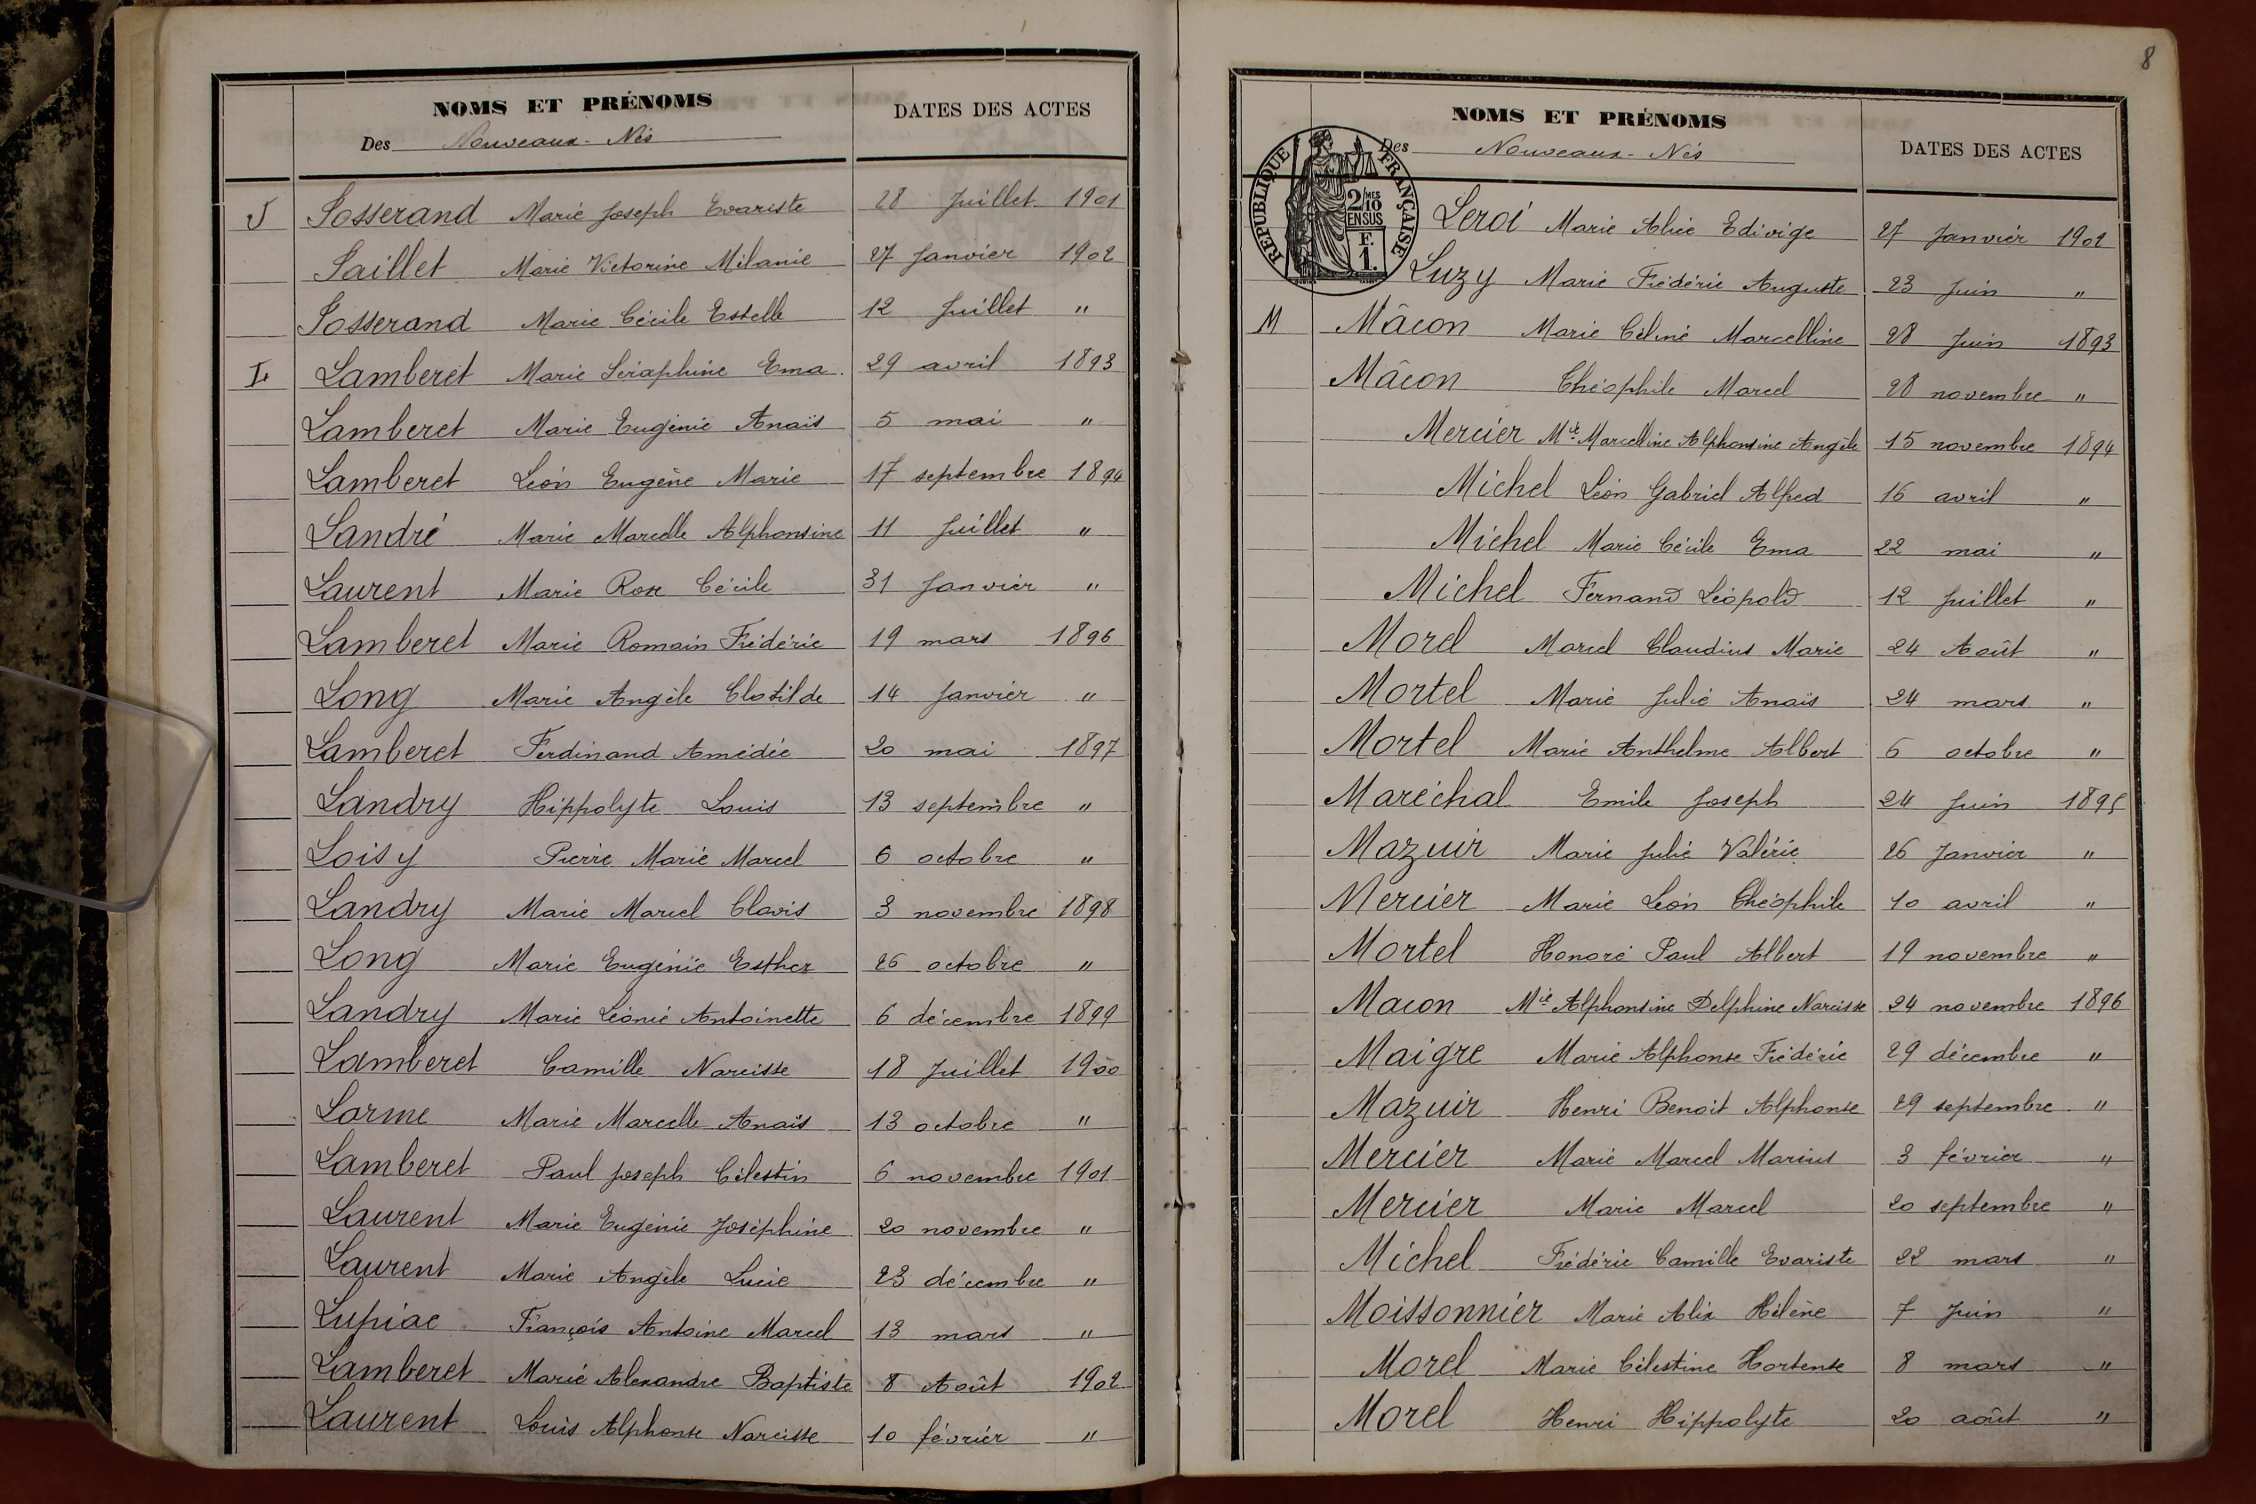 NOMS ET PRÉNOMS
Des Nouveaux-Nés
DATES DES ACTES
J Josserand Marie Joseph Evariste 28 Juillet 1901
Jaillet Marie Victorine Mélanie 27 Janvier 1902
Josserand Marie Cécile Estelle 12 Juillet "
L Lamberet Marie Séraphine Ema 29 avril 1893
Lamberet Marie Eugénie Anaïs 5 mai "
Lamberet Léon Eugène Marie 17 septembre 1894
Landré Marie Marcelle Alphonsine 11 Juillet "
Laurent Marie Rose Cécile 31 Janvier "
Lamberet Marie Romain Frédéric 19 mars 1896
Long Marie Angèle Clotilde 14 Janvier "
Lamberet Ferdinand Amédée 20 mai 1897
Landry Hippolyte Louis 13 septembre "
Loisy Pierre Marie Marcel 6 octobre "
Landry Marie Marcel Clovis 3 novembre 1898
Long Marie Eugénie Esther 26 octobre "
Landry Marie Léonie Antoinette 6 décembre 1899
Lamberet Camille Narcisse 18 Juillet 1900
Lorme Marie Marcelle Anaïs 13 octobre "
Lamberet Paul Joseph Célestin 6 novembre 1901
Laurent Marie Eugénie Joséphine 20 novembre "
Laurent Marie Angèle Lucie 23 décembre "
Lupiac François Antoine Marcel 13 mars "
Lamberet Marie Alexandre Baptiste 8 Août 1902
Laurent Louis Alphonse Narcisse 10 février "
8
NOMS ET PRÉNOMS
Des Nouveaux-Nés
DATES DES ACTES
RÉPUBLIQUE FRANÇAISE
2/10 MES
EN SUS
F.
1.
Leroi Marie Alice Edivige 27 Janvier 1902
Luzy Marie Frédéric Auguste 23 Juin "
M Mâcon Marie Céline Marcelline 28 Juin 1893
Mâcon Théophile Marcel 28 novembre "
Mercier Mie Marcelline Alphonsine Angèle 15 novembre 1894
Michel Léon Gabriel Alfred 16 avril "
Michel Marie Cécile Ema 22 mai "
Michel Fernand Léopold 12 Juillet "
Morel Marcel Claudius Marie 24 Août "
Mortel Marie Julie Anaïs 24 mars "
Mortel Marie Anthelme Albert 6 octobre "
Maréchal Emile Joseph 24 Juin 1895
Mazuir Marie Julie Valérie 26 Janvier "
Mercier Marie Léon Théophile 10 avril "
Mortel Honoré Paul Albert 19 novembre "
Macon Mie Alphonsine Delphine Narcisse 24 novembre 1896
Maigre Marie Alphonse Frédéric 29 décembre "
Mazuir Henri Benoit Alphonse 29 septembre "
Mercier Marie Marcel Marius 3 février "
Mercier Marie Marcel 20 septembre "
Michel Frédéric Camille Evariste 22 mars "
Moissonnier Marie Alix Hélène 7 Juin "
Morel Marie Célestine Hortense 8 mars "
Morel Henri Hippolyte 20 août "